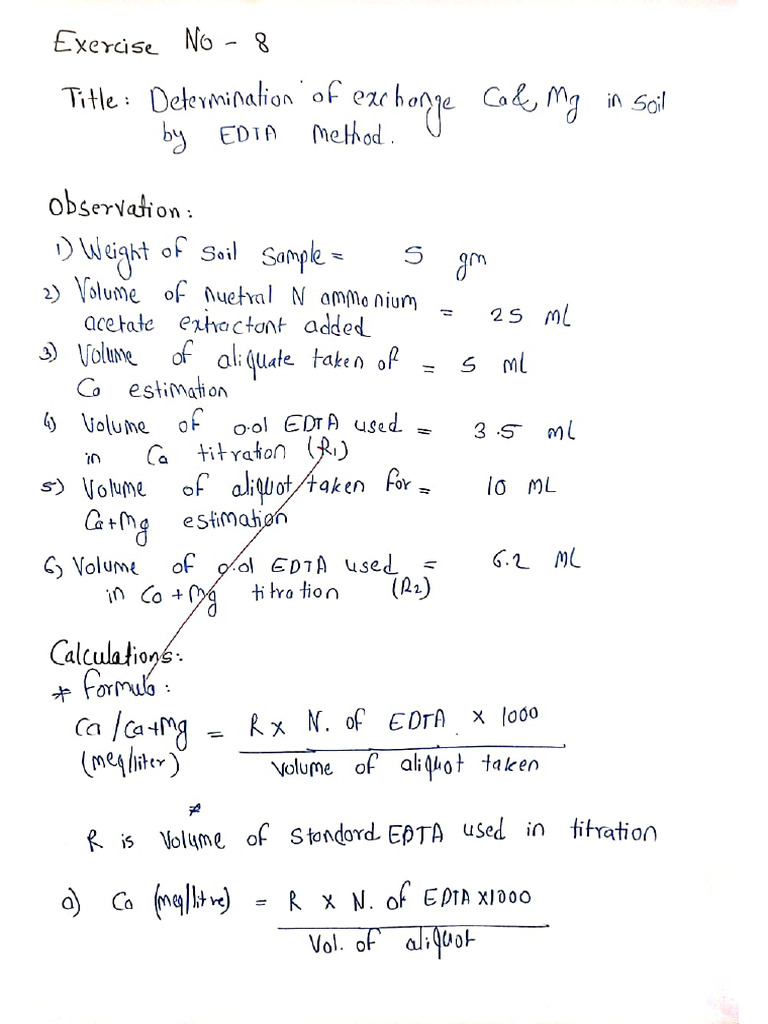 Exercise No - 8
Title: Determination of exchange Ca & Mg in soil
by EDTA Method.
Observation:
1) Weight of soil sample = 5 gm
2) Volume of nuetral N ammonium
acetate extractant added = 25 ml
3) Volume of aliquate taken of = 5 ml
Ca estimation
4) Volume of 0.01 EDTA used = 3.5 ml
in Ca titration (R1)
5) Volume of aliquot taken for = 10 ML
Ca+Mg estimation
6) Volume of 0.01 EDTA used = 6.2 ML
in Ca + Mg titration (R2)
Calculations:
* formula:
Ca / Ca+Mg = R x N. of EDTA x 1000
(meq/liter) Volume of aliquot taken
R is Volume of standard EDTA used in titration
a) Ca (meq/litre) = R x N. of EDTA x1000
Vol. of aliquot